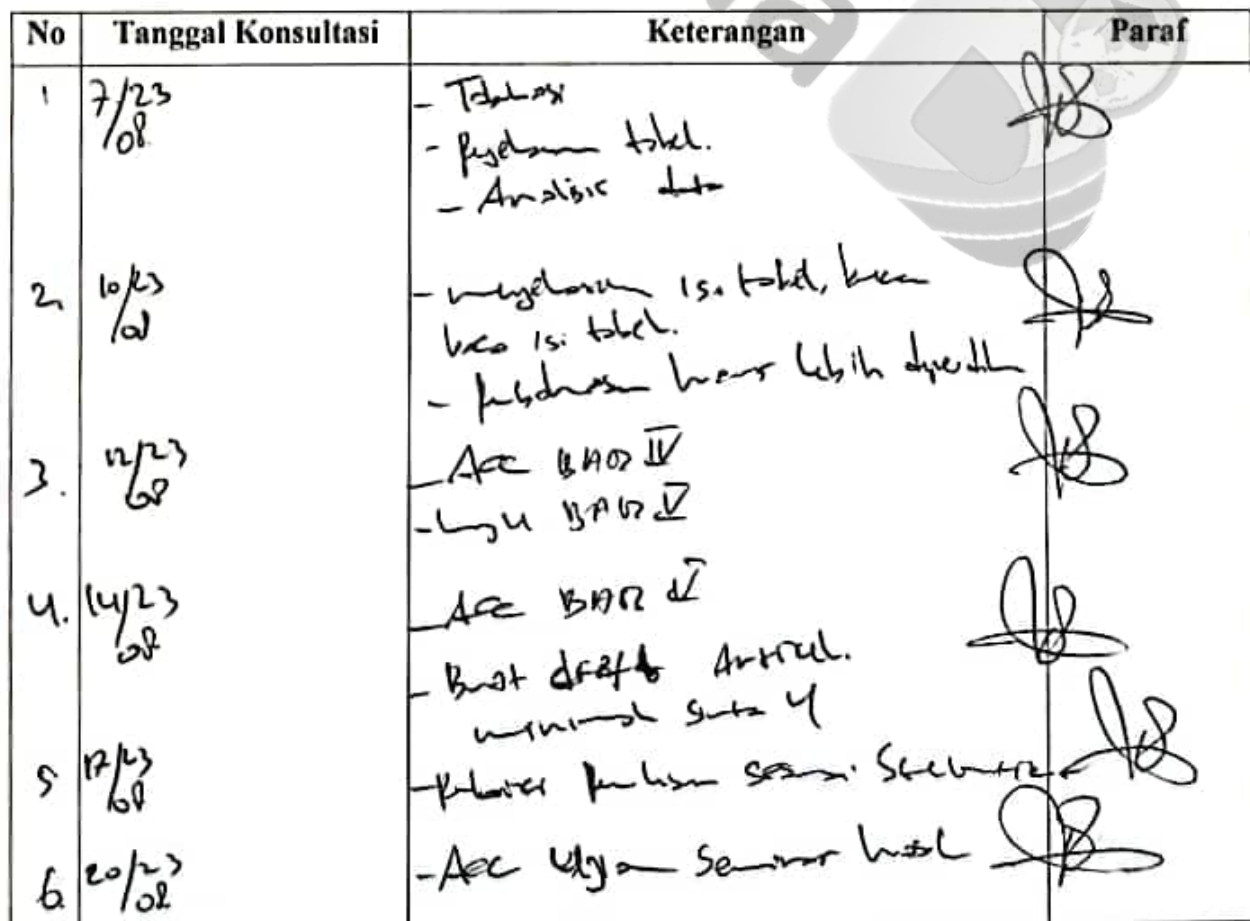 No Tanggal Konsultasi Keterangan Paraf
1 7/23 - Tabulasi
/08 - Penjelasan tabel.
- Analisis data
2. 10/23 - menjelaskan isi tabel, bukan
/08 baca isi tabel.
- pembahasan harus lebih diperdalam
3. 12/23 - Acc BAB IV
/08 - BAB V
4. 14/23 - Acc BAB V
/08 - Buat draft Artikel.
minimal Sinta 4
5 17/23 - penulisan sesuai
/08
6. 20/23 - Acc Ujian Seminar hasil
/08